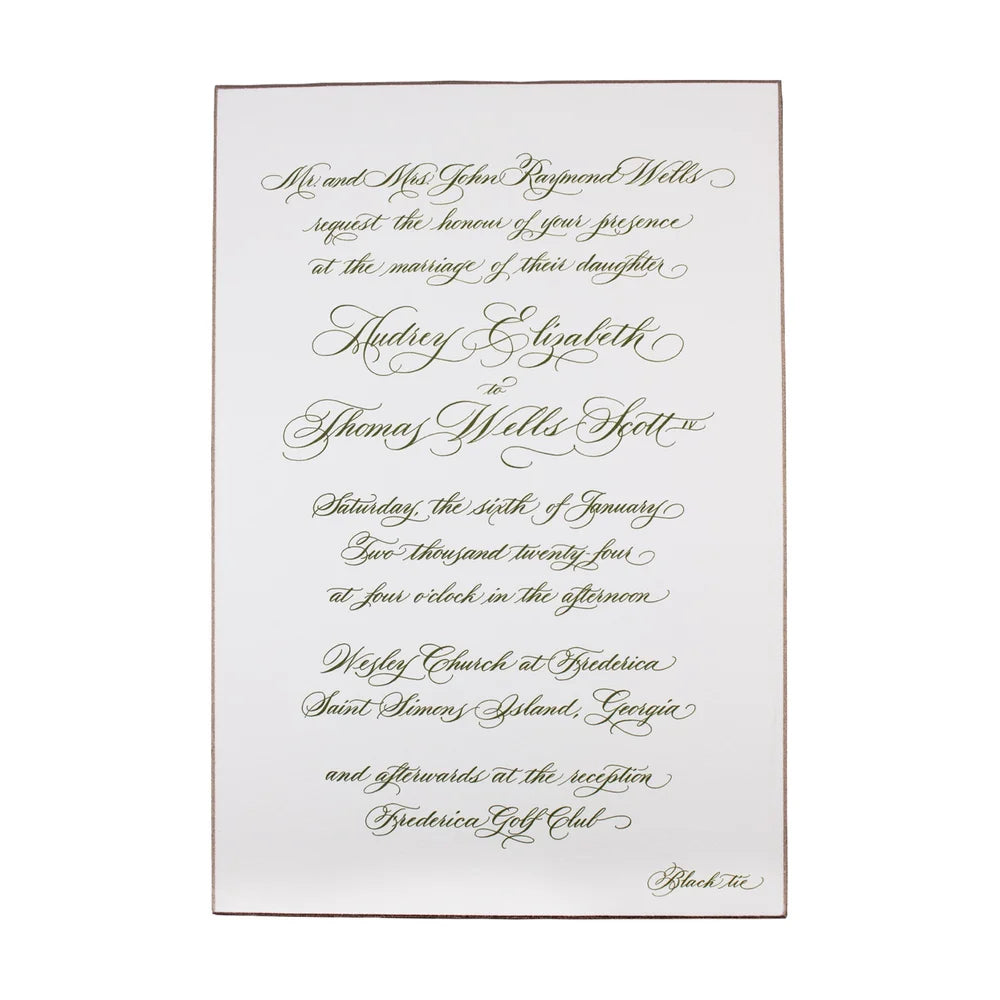 Mr. and Mrs. John Raymond Wells
request the honour of your presence
at the marriage of their daughter
Audrey Elizabeth
to
Thomas Wells Scott IV
Saturday, the sixth of January
Two thousand twenty-four
at four o'clock in the afternoon
Wesley Church at Frederica
Saint Simons Island, Georgia
and afterwards at the reception
Frederica Golf Club
Black tie